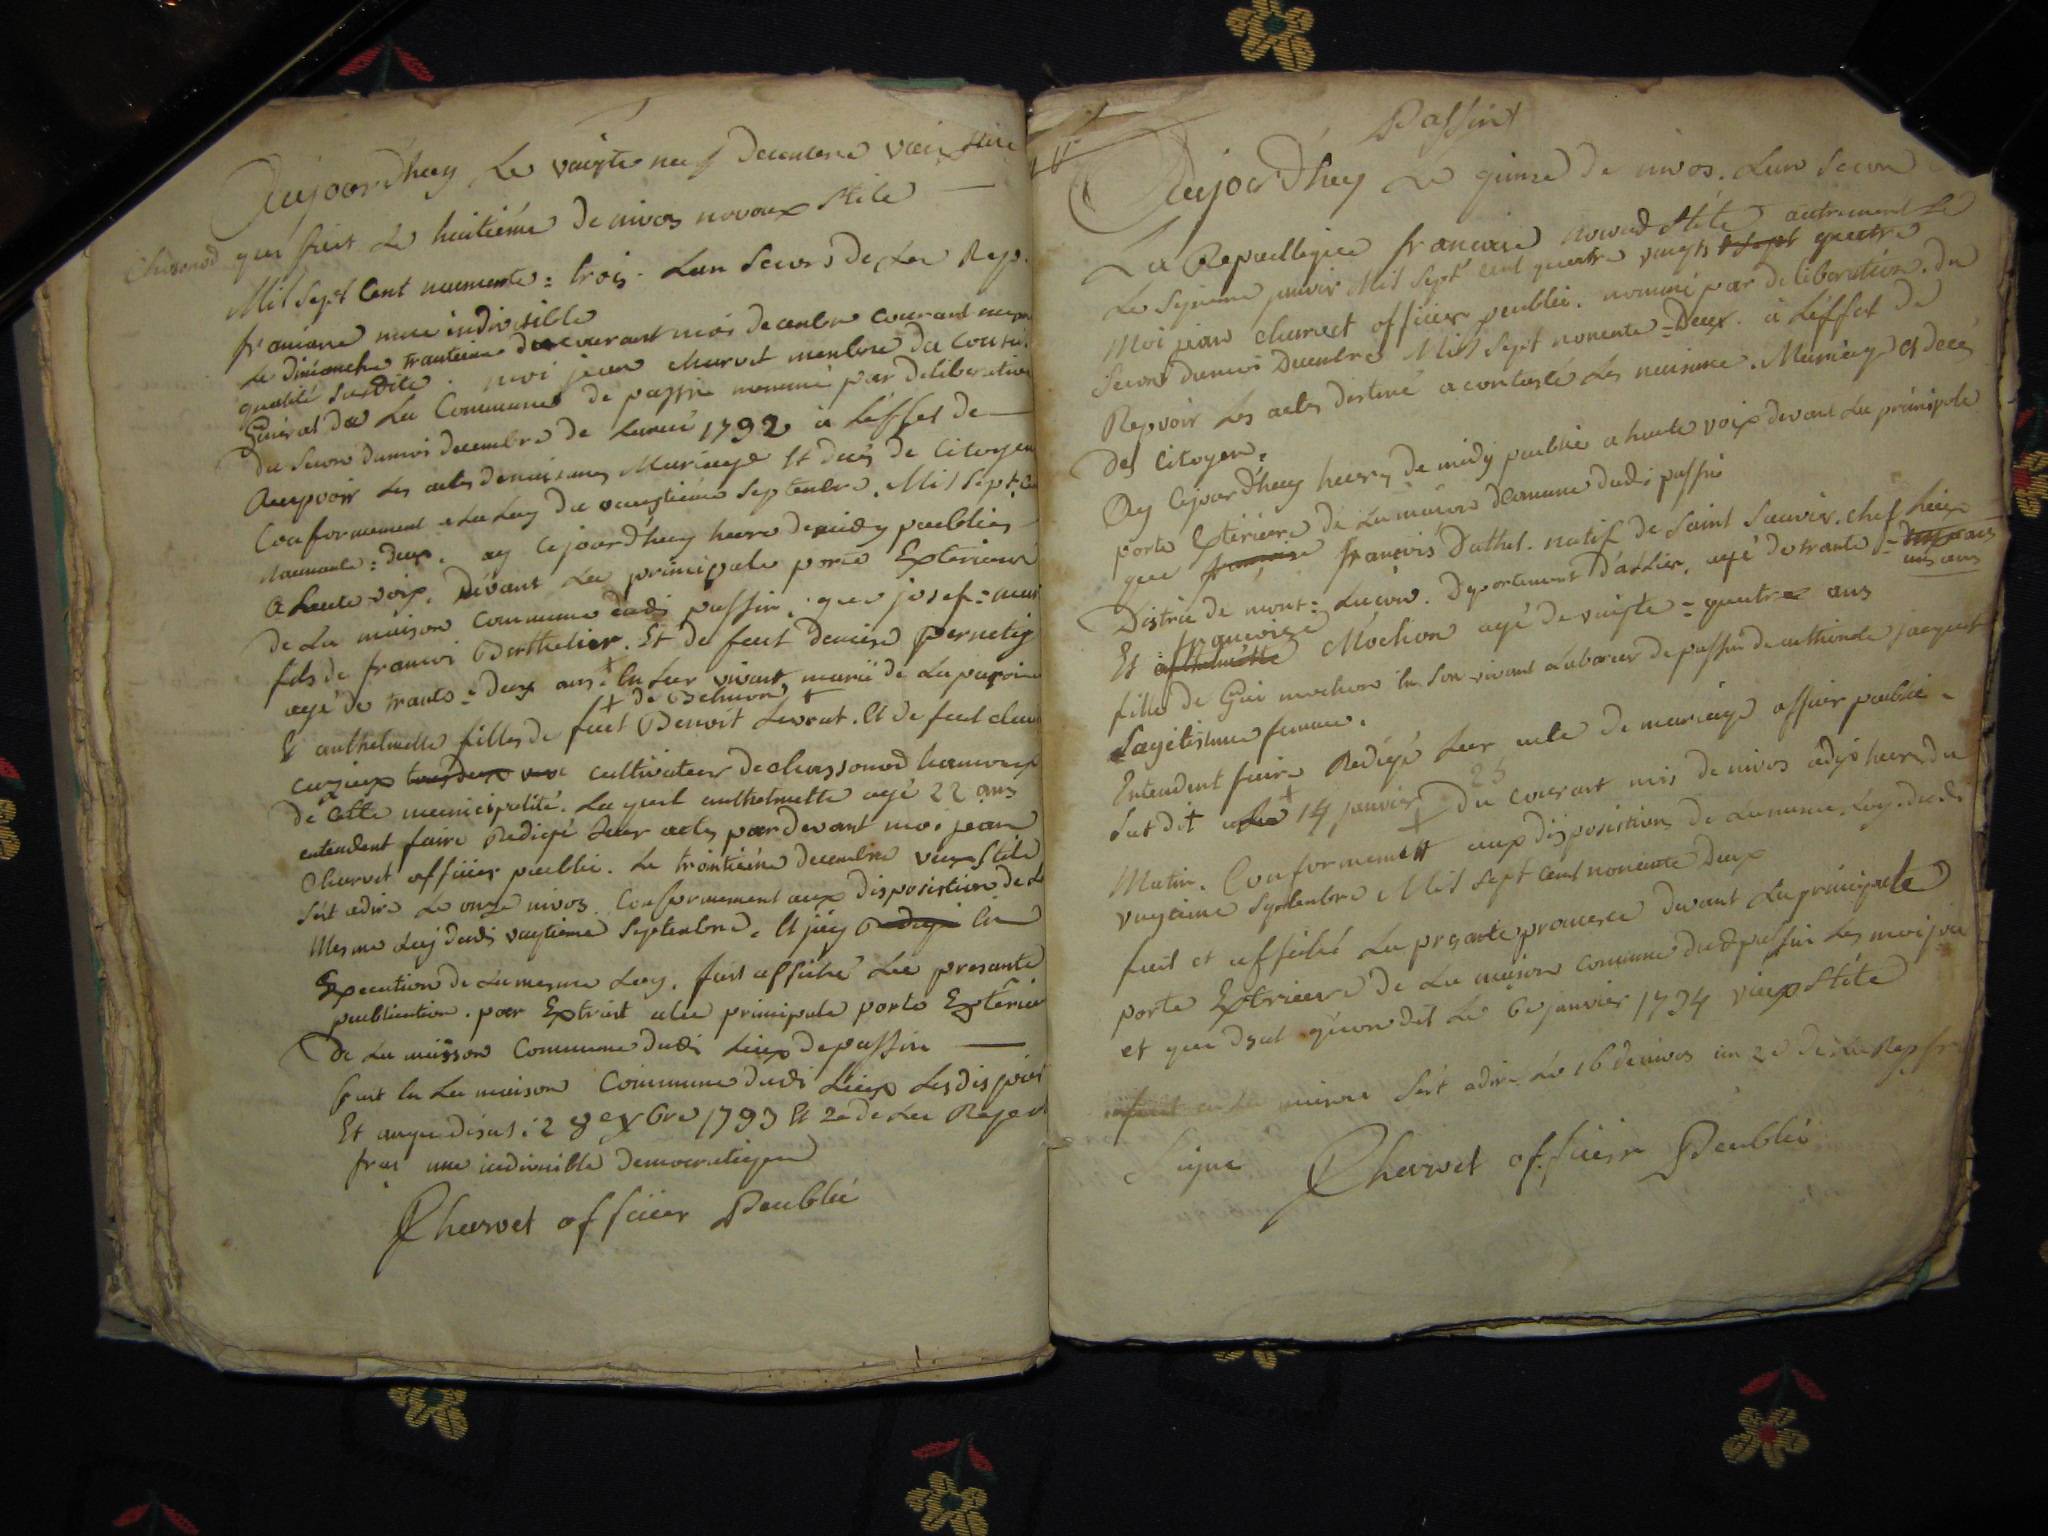 Aujoordhuy Le vaigte neuf decembre vieu stile
Chasonod
qui fiert Le huitiéme De nivos novoux Stile
Mil sept Cent nonente = trois. Lan Secons de La Rep.
francaise une indivisible
Le dimanche trantieme du courant mois decenbre courant
qualité Susdite. moi jean charvet menbre du Conseil
General de La Commune de passin nommé par deliberation
du Secon dumoi decembre de Lanné 1792 à Léffet de
Recepvoir Les actes denaisances Mariage Et décés de Citoyen
Conformement a La Loy du vangtiéme Septenbre. Mil Sept. Cen
nonante = deux. ay cejoordhuy heure demidy poublies
a haute voix. Dévant La principale porte Exterieure
de La maison Commune dudi passin. que josef = 
fils de francoi Berthelier. Et de feut denise pernetig
agé de trante = deux ans. En Leur vivant marié de La paroi
+ de Belmon +
Et anthelmette filles de feut Benoit Levrat. Et de feut clau
cultivateur de chassonod hameau
de Cette municipalité. La quel anthelmette agé 22 ans
entendent faire Redigé Leur acte par devant moi jean
Charvet officier poublic. Le trantiéme decembre vieux Stile
Sést adire Le onze nivos. Conformement aux disposistion de La
Mesme Loy dudi vangtieme Septenbre. Et jéy Redigé En
Execution de La mesme Loy. fait affiché La presante
publication. par Extrait a la principale porte Extérieur
de La maison Commune dudi Lieux de passin
fait En La maison Commune dudi Lieux Les dis jour
Et anque disus: 28 e xbre 1793 Et 2e de La Repu
fran une indivisible democratique
Charvet officier Peublié
Passint
Aujoordhuy Le quinze de nivos. Lan Secon
La Republique francaise novaux Stile autrement Le
Le Sizieme janvier Mil Sept cent quatre vaingts sept quatre
Moi jean charvet officier peublic. nommé par deliberation. du
Secon dumoi Decembre Mil Sept nonente = Deux. à Léffet de
Repvoir Les actes destiné a contasté Lés naisance. Mariage et decés
Des Citoyen.
Ay Cejoordhuy heure de midy poublié a haute voix devant La prinsipale
porte Extérieure de La maison Comune dudi passin
que francoise francois Dathel. natif de Saint Sauvier. chef Lieux
Distric de mont = Luçon. Departement Dallier. agé de trante =
un ans
francoise
Et anthelmette Mochon agé de vaigte = quatre ans
filles de Gui mochon En Son vivant Laboreur de passin de anthienete jacquet
Sagetisime femme.
Entendent faire Redigé Leur acte de mariage officier poublic
Susdit + Le 14 janvier + 25 Du courant mois de nivos adix heure du
Matin. Conformement aux disposistion de La mesme Loy. dudi
vangtiéme Septenbre Mil Sept cent nonente Deux
fait et affiché La presante promesse devant La principale
porte Exterieure de La maison comune dudi passin Les moi jour
et que dsut qu'on dit Le 6e janvier 1794 vieux Stile
fait en La maison Sést adire Le 16 de nivos an 2e de La Rep fr
Signe Charvet officier Peublié